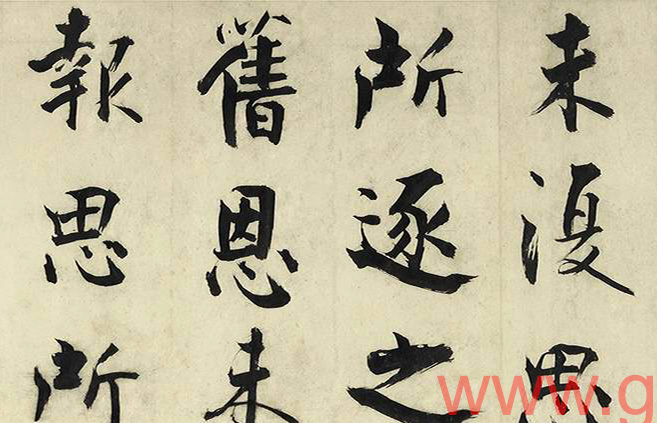 未復思
所逐之
舊恩未
報思所
www.g